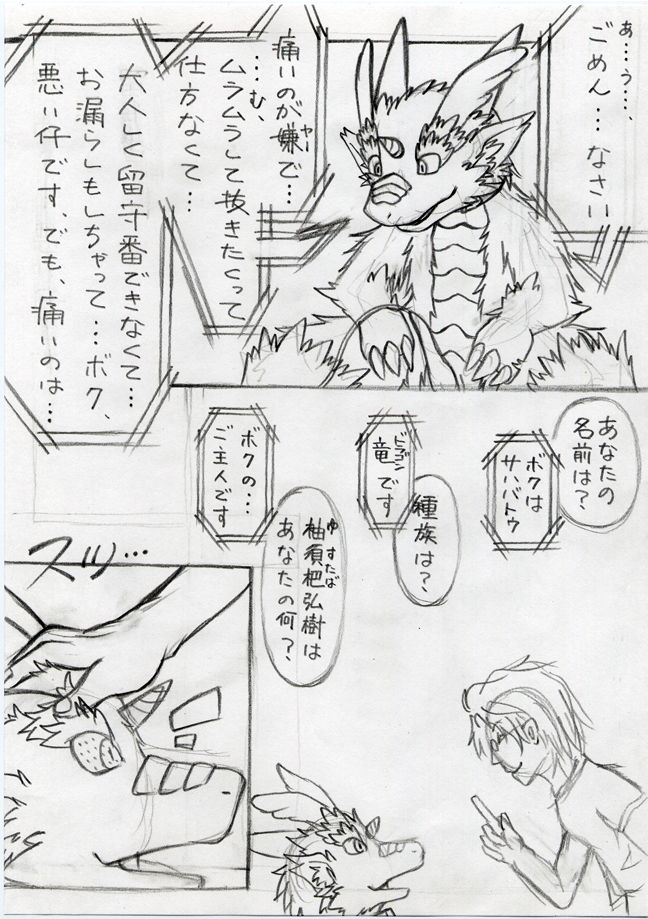 あ…う…、
ごめん…なさい
痛いのが嫌で…
ヤー
…む、
ムラムラして抜きたくって
仕方なくて…
大人しく留守番できなくて…
お漏らしもしちゃって…ボク、
悪い仔です、でも、痛いのは…
あなたの
名前は?
ボクは
サハバトゥ
種族は?
ドラゴン
竜です
ゆ すたば
柚須杷弘樹は
あなたの何?
ボクの…
ご主人です
スッ…